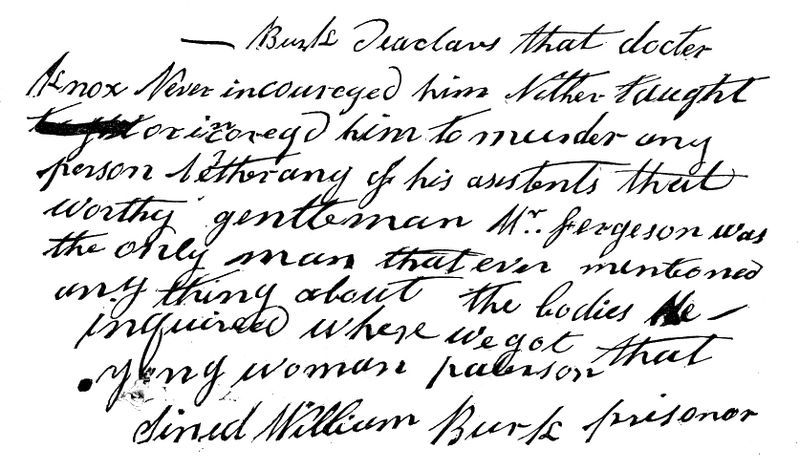 — Burk deaclars that docter
Knox Never incoureged him Nither taught
or incoregd him to murder any
person Nether any of his asistents that
worthy gentleman Mr. fergeson was
the only man that ever mentioned
any thing about the bodies He —
inquired where we got that
yong woman paterson
Sined William Burk prisonor